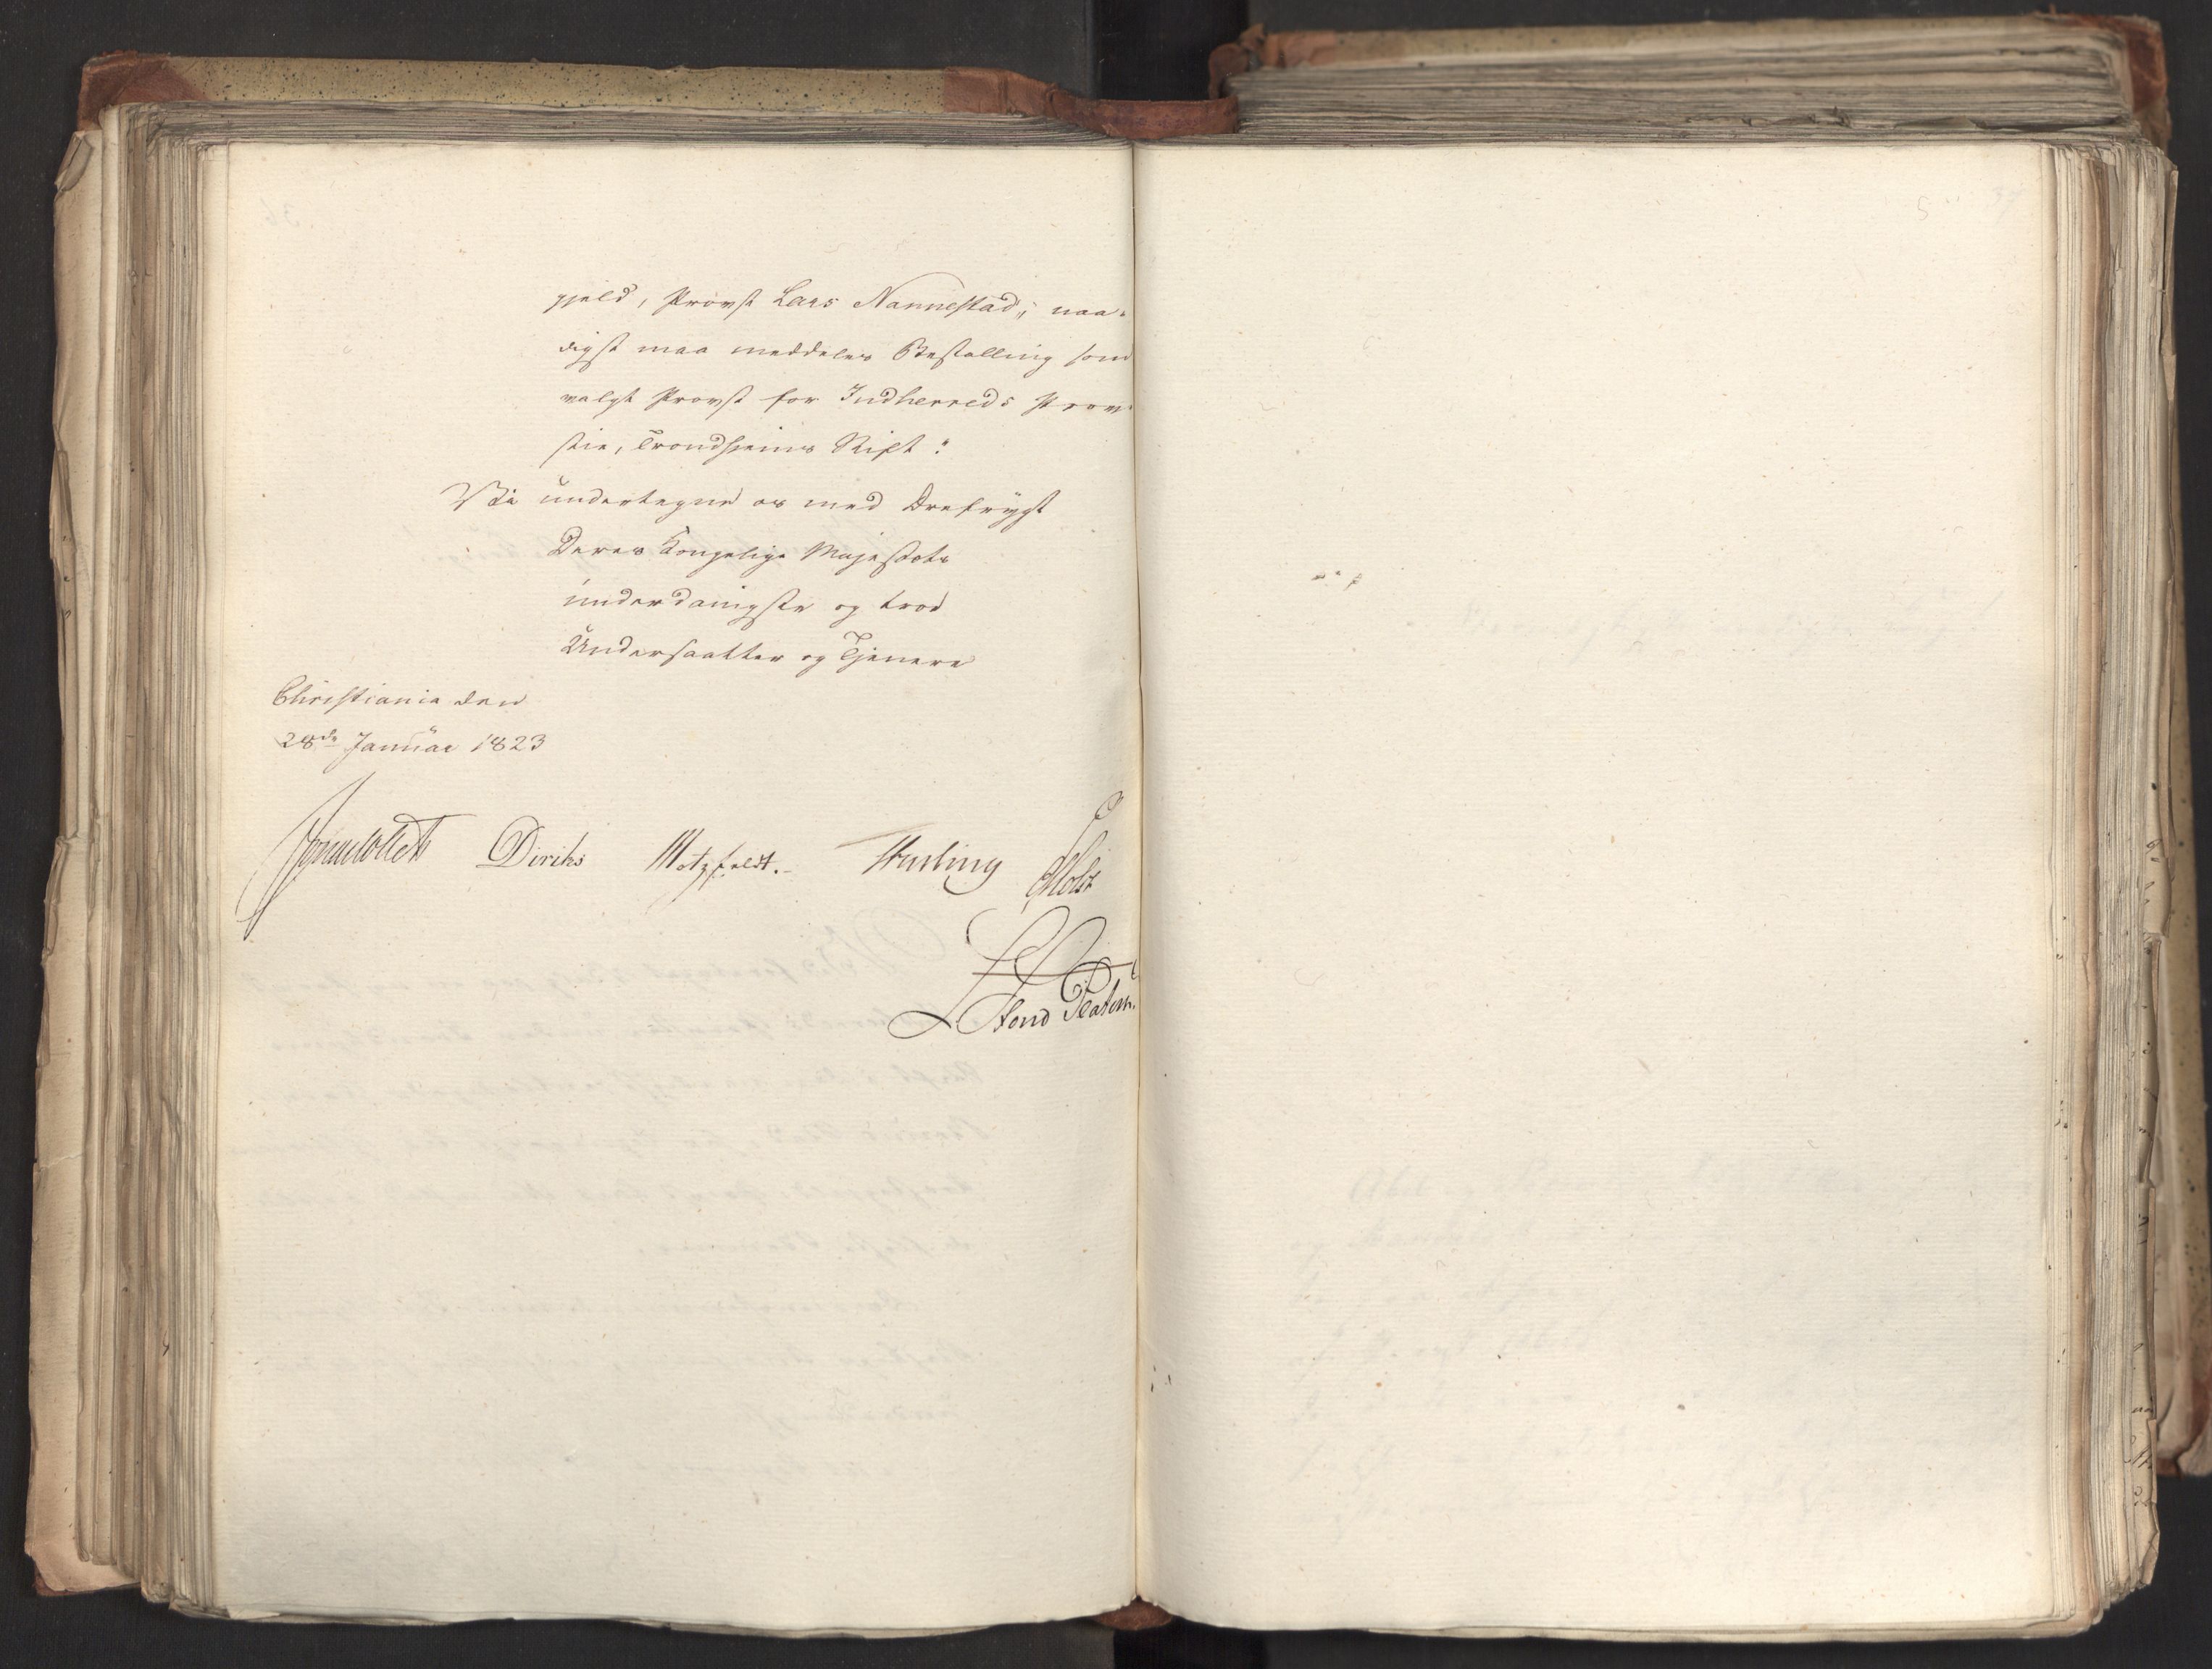 gjeld, Provst Lars Nannestad, naa-
digst maa meddeles Bestalling som
valgt Provst for Indherreds Prov-
stie, Trondhjems Stift."
Vi undertegne os med Ærefrygt
Deres Kongelige Majestæts
underdanigste og troe
Undersaatter og Tjenere
Christiania den
28de Januar 1823
Jonas Collett Diriks Motzfeldt. Fasting Holst